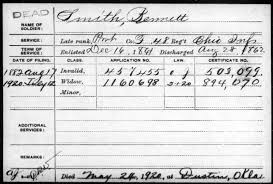 DEAD
NAME OF SOLDIER:
Smith, Bennett
Late rank, Pvt Co. G, 48 Reg't Ohio Inf
Enlisted Dec 16, 1861 Discharged Aug 28 1862
DATE OF FILING. CLASS. APPLICATION NO. LAW. CERTIFICATE NO.
1882 Aug 17 Invalid, 457455 503,099
1920 July 12 Widow, 1160698 894,070
Minor,
ADDITIONAL SERVICES:
REMARKS:
Died May 24, 1920, at Dustin, Okla